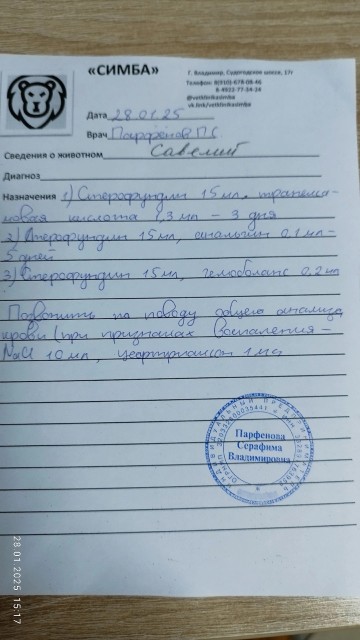 «СИМБА»
Г. Владимир, Судогодское шоссе, 17г
Телефон: 8(910)-678-08-46
8-4922-77-24-24
@vetklinikasimba
vk.link/vetklinikasimba
Дата 28.01.25
Врач Парфёнов
Сведения о животном Савелий
Диагноз
Назначения 1) Стерофундин 15 мл, транекса-
мовая кислота 1,3 мл – 3 дня
2) Стерофундин 15 мл, анальгин 0,1 мл –
5 дней
3) Стерофундин 15 мл, гемобаланс 0,2 мл
Позвонить по поводу общего анализа
крови (при признаках воспаления –
NaCl 10 мл, цефтриаксон 1 мл
Парфенова
Серафима
Владимировна
28.01.2025 15:17